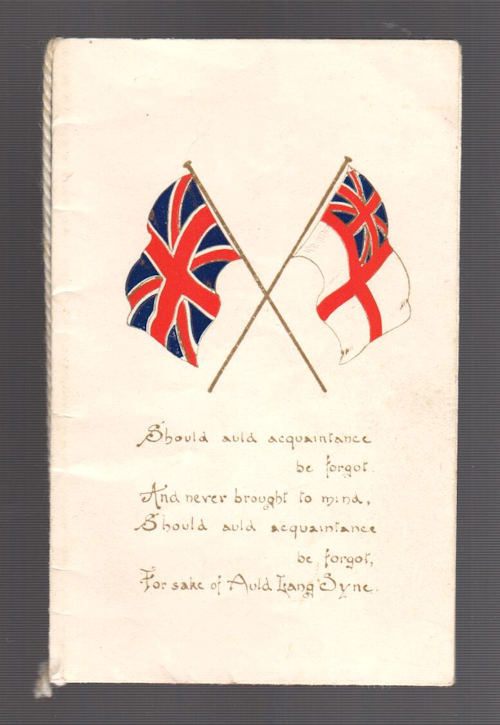 Should auld acquaintance
be forgot.
And never brought to mind,
Should auld acquaintance
be forgot,
For sake of Auld Lang Syne.